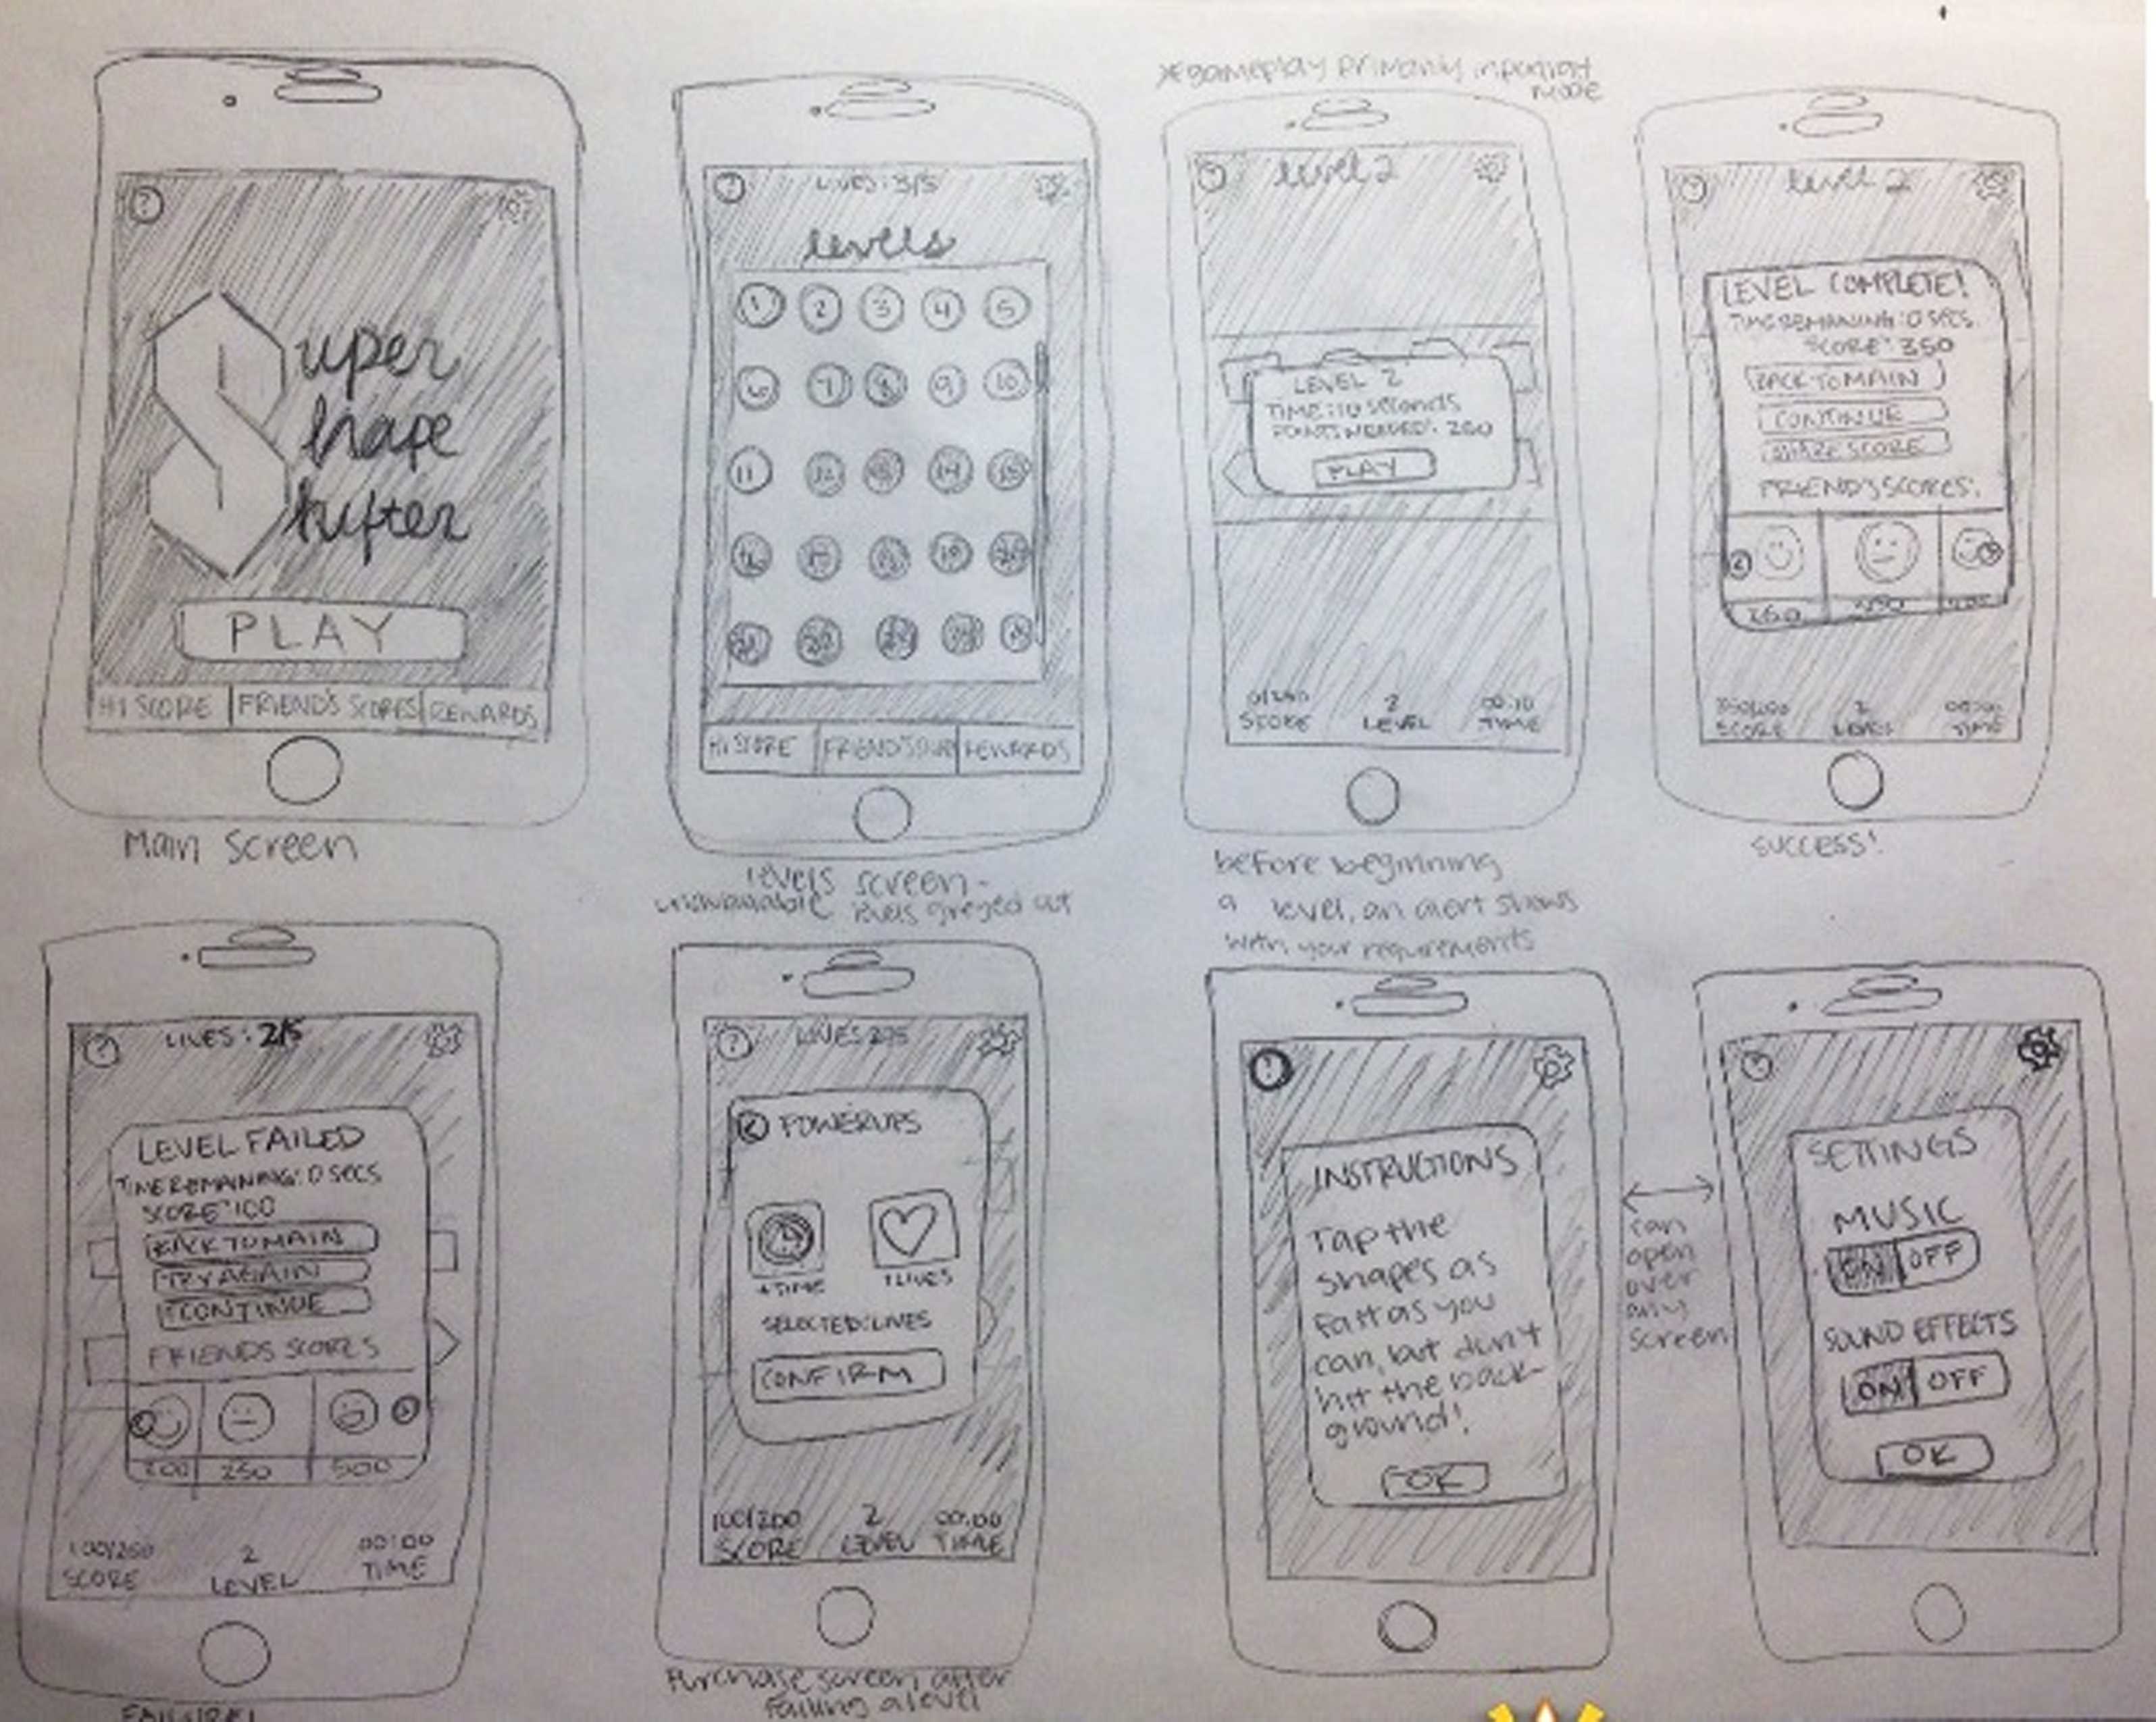 *gameplay primarily in portrait
mode
?
Super
Shape
Shifter
PLAY
HI SCORE
FRIEND'S SCORES
REWARDS
Main Screen
?
LIVES: 3/5
levels
1 2 3 4 5
6 7 8 9 10
11 12 13 14 15
16 17 18 19 20
21 22 23 24 25
HI SCORE
REWARDS
levels screen-
unavailable levels greyed out
?
level 2
LEVEL 2
TIME: 10 seconds
POINTS NEEDED: 250
PLAY
0/250
SCORE
2
LEVEL
00:10
TIME
before beginning
a level, an alert shows
with your requirements
?
level 2
LEVEL COMPLETE!
TIME REMAINING: 0 SECS.
SCORE: 350
BACK TO MAIN
CONTINUE
SHARE SCORE
FRIEND'S SCORES:
250
SCORE
2
LEVEL
TIME
SUCCESS!
?
LIVES: 2/5
LEVEL FAILED
TIME REMAINING: 0 SECS
SCORE: 100
BACK TO MAIN
TRY AGAIN
CONTINUE
FRIENDS SCORES
200
250
500
100/250
SCORE
2
LEVEL
00:00
TIME
FAILURE!
?
LIVES 2/5
POWERUPS
+TIME
+LIVES
SELECTED: LIVES
CONFIRM
100/200
SCORE
2
LEVEL
00:00
TIME
Purchase screen after
failing a level
?
INSTRUCTIONS
Tap the
shapes as
fast as you
can, but don't
hit the back-
ground!
OK
can
open
over
any
screen
?
SETTINGS
MUSIC
ON OFF
SOUND EFFECTS
ON OFF
OK